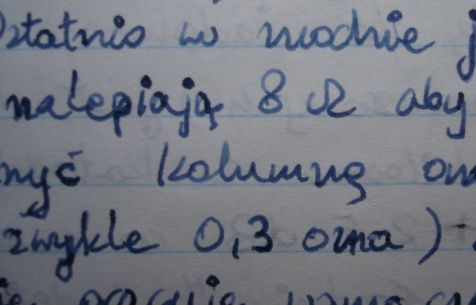 Ostatnio w modnie j
nalepiają 8 Ω aby
nyć kolumnę om
zwykle 0,3 oma) -